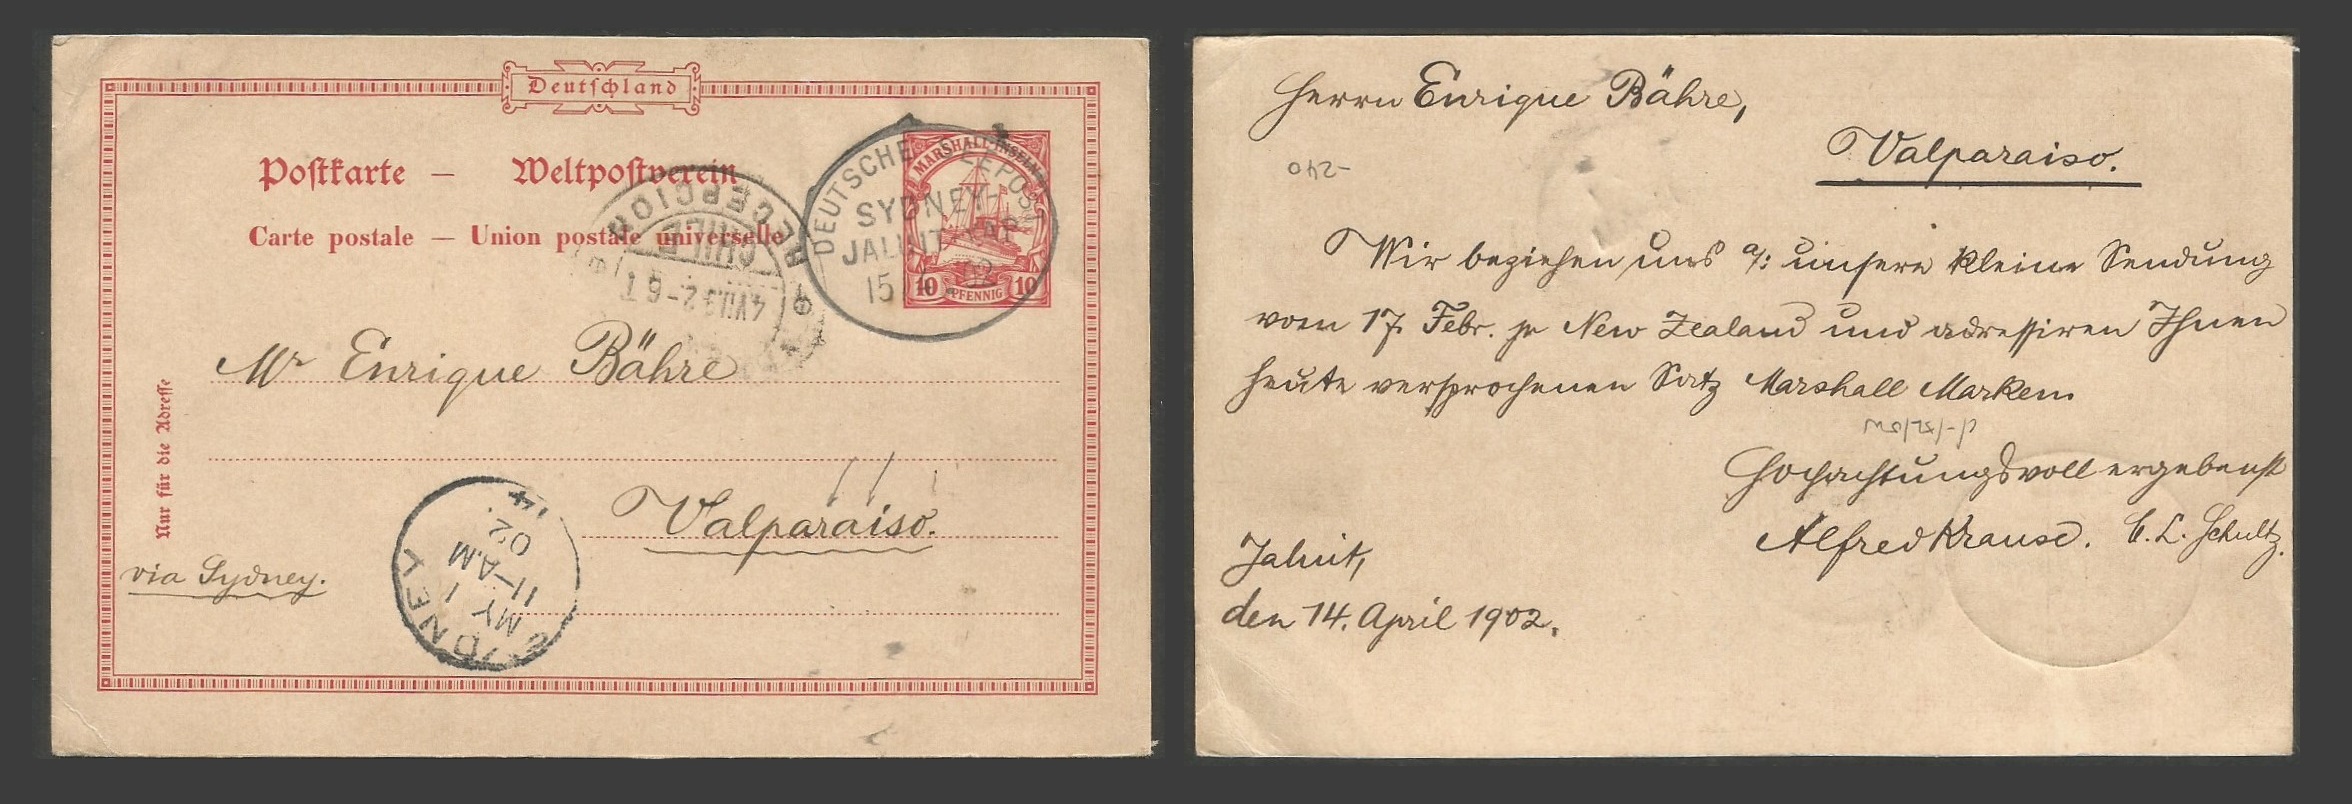 Deutschland
Postkarte — Weltpostverein
Carte postale — Union postale universelle
MARSHALL-INSELN
10 PFENNIG 10
DEUTSCHE SEEPOST
SYDNEY-
JALUIT
15
02
RECEPCION
CHILE
Nur für die Adresse
Mr Enrique Bähre
Valparaiso.
via Sydney.
SYDNEY
MY 1
11-AM
02.
14
Herrn Enrique Bähre,
Valparaiso.
240-
Wir beziehen uns a/: unsere kleine Sendung
vom 17. Febr. New Zealand und adressiren Ihnen
heute versprochenen Satz Marshall Marken.
Hochachtungsvoll ergebenst
Alfred Krause. C. L. Schultz.
Jaluit,
den 14. April 1902.